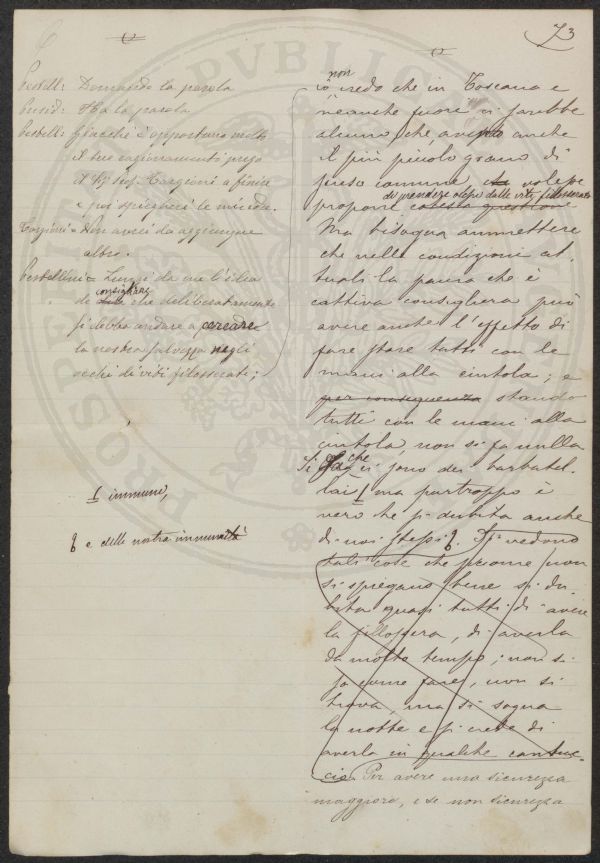 73
Pestell: Domando la parola
Presid: Ha la parola
Pestell: giacchè è opportuno molto
il suo ragionamento prego
il Sig Prof. Targioni a finire
e poi spiegarci le misure.
Targioni = Non avrei da aggiungere
altro.
Pestellini = Lungi da me l'idea
di consigliare che deliberatamente
si debba andare a cercare
la nostra salvezza negli
occhi di viti filosserati;
I immuni,
q e della nostra immunità
non
io credo che in Toscana e
neanche fuori vi sarebbe
alcuno, che avesse anche
il più piccolo grano di
senso comune che volesse
di prendere
dalle viti filosserate
proporre codesta questione
Ma bisogna ammettere
che nelle condizioni at
tuali la paura che è
cattiva consigliera può
avere anche l'effetto di
fare stare tutti con le
mani alla cintola; e
per conseguenza stando
tutti con le mani alla
cintola non si fa nulla
Si sa che ci sono dei barbatel-
lai I ma purtroppo è
vero che si dubita anche
di noi stessi q. Si vedono
tali cose che persone non
si spiegano bene si du
bita quasi tutti di avere
la fillossera, di averla
da molto tempo; non si
sa come fare, non si
trova, ma si sogna
la notte e si crede di
averla in qualche cantuc-
cio. Per avere una sicurezza
maggiore, e se non sicurezza